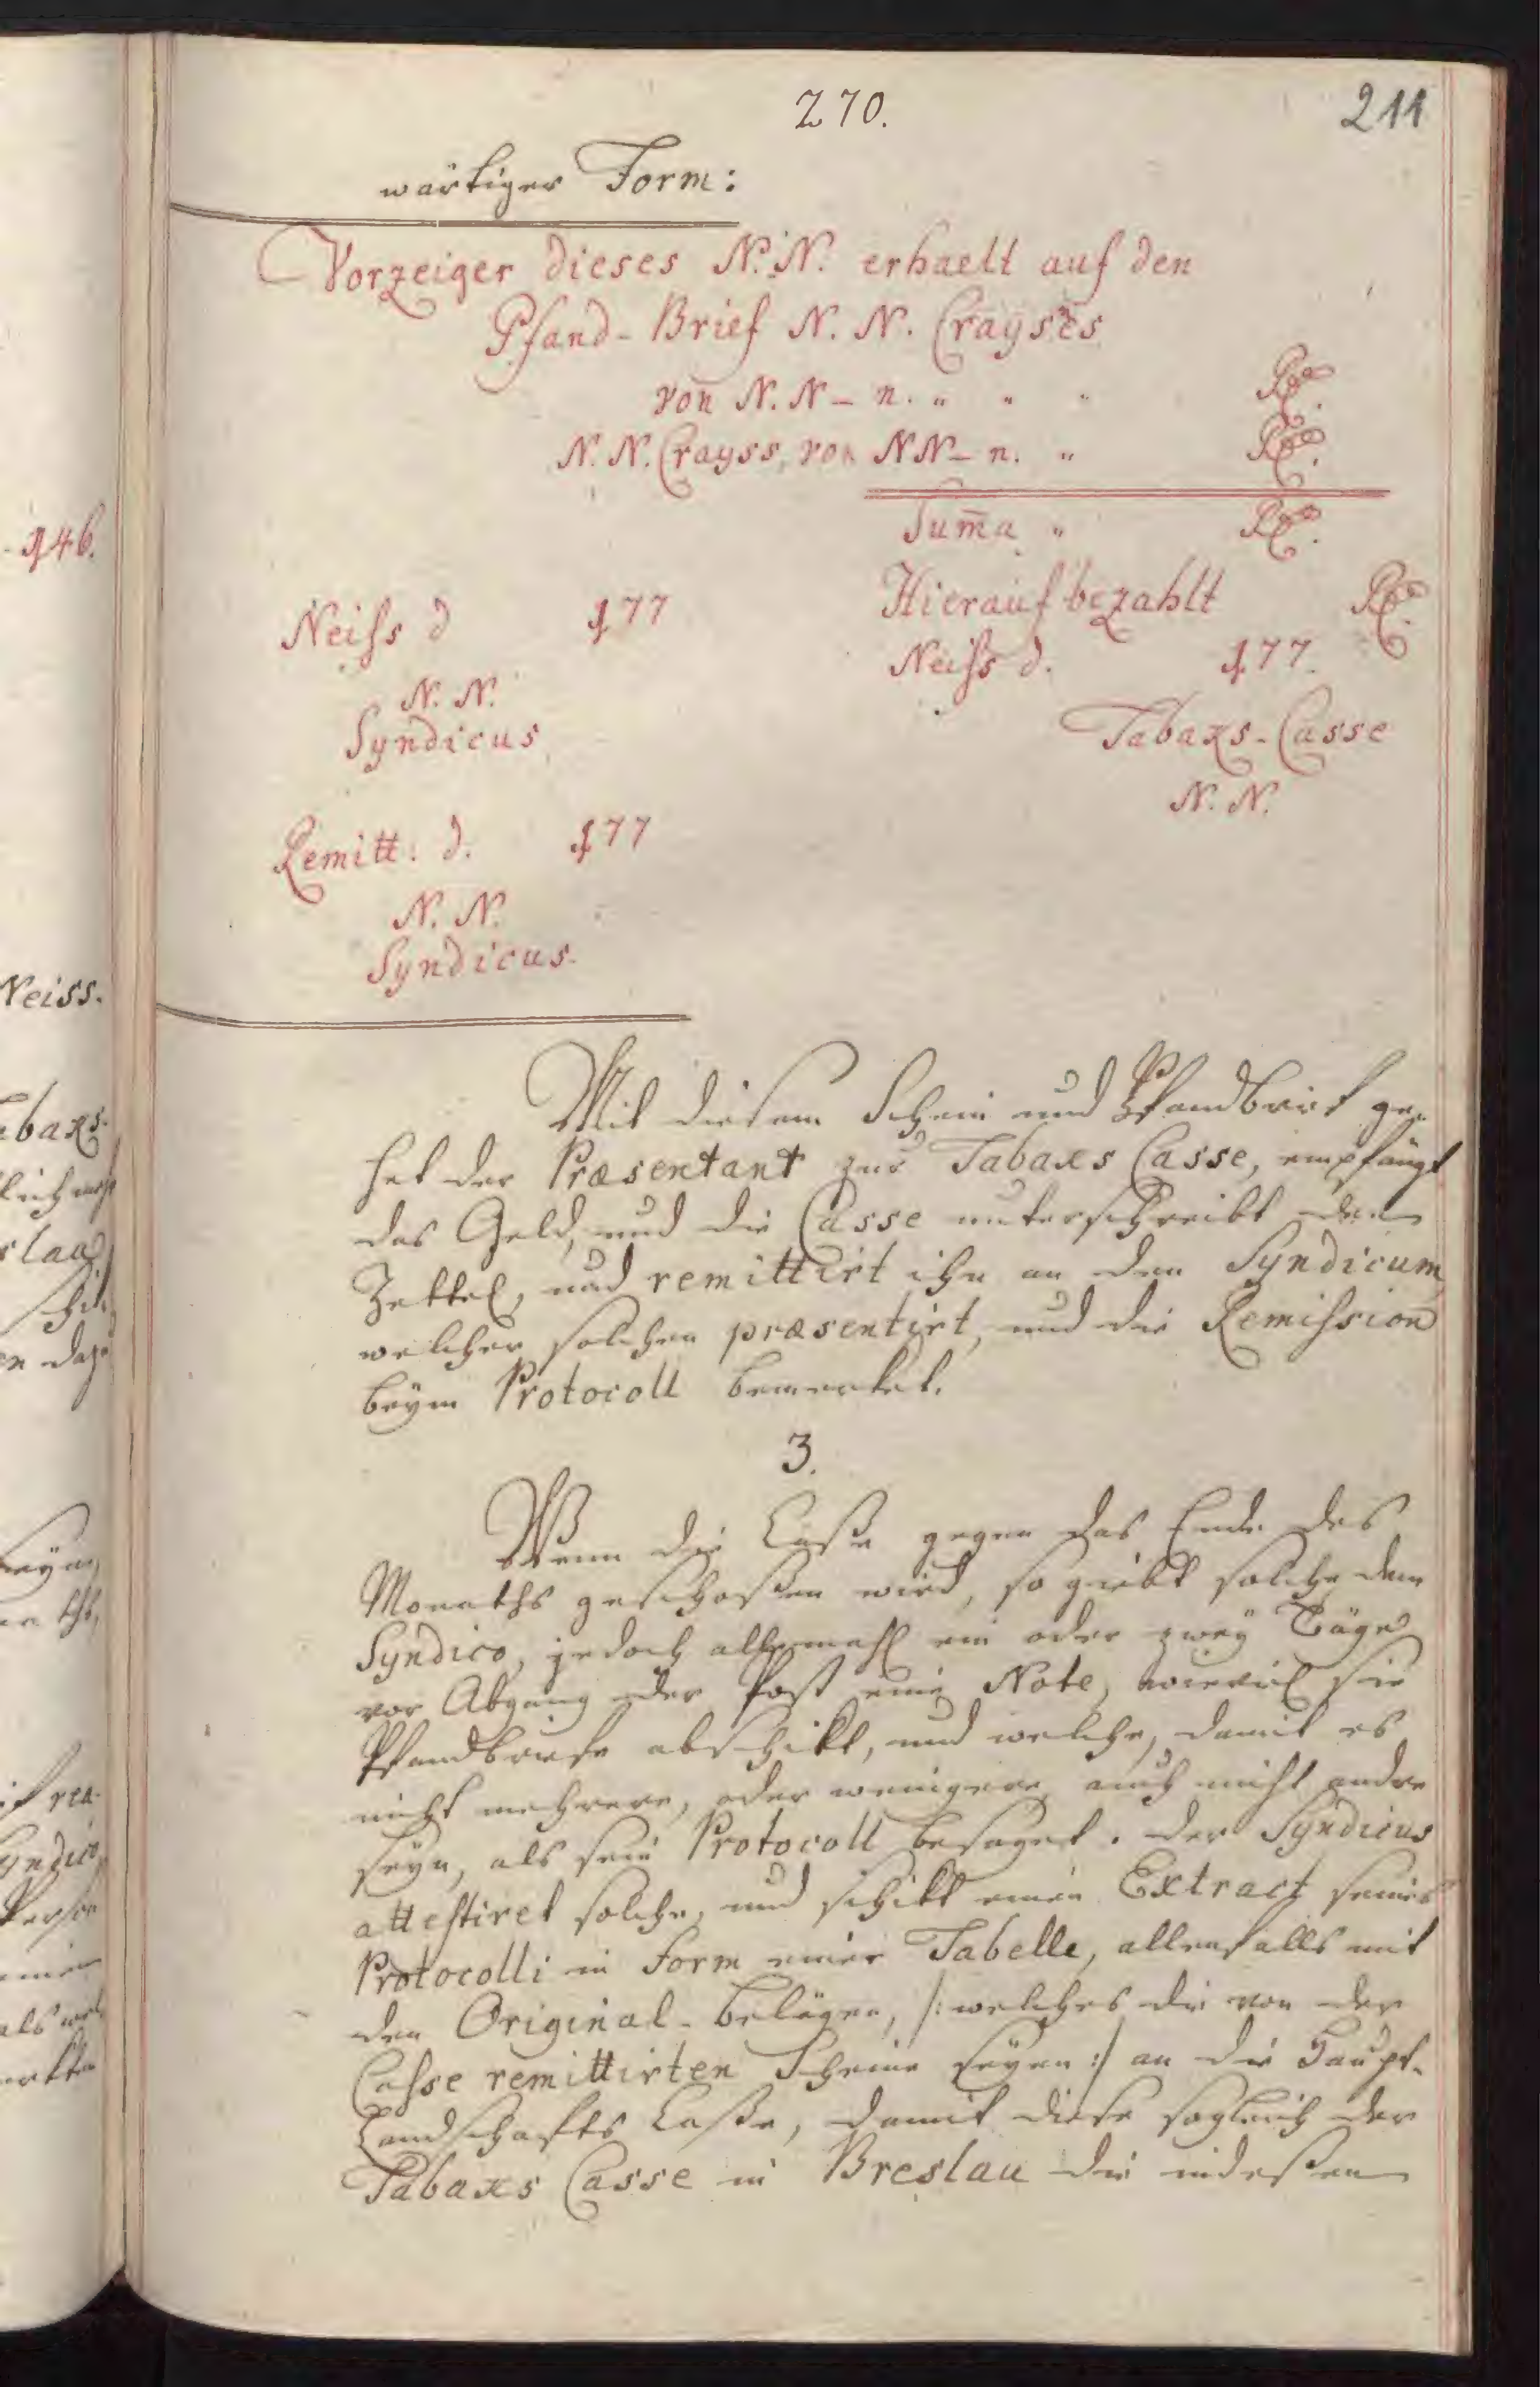 270.
211
wärtiger Form:
Vorzeiger dieses N. N. erhaelt auf den
Pfand-Brief N. N. Crayses
von N. N - n. " " " Rtl.
N. N. Crayss, von NN - n. " Rtl.
Sum̄a " Rtl.
Neiss d 177
Hierauf bezahlt Rtl.
Neiss d. 177.
N. N.
Syndicus
Tabaxs-Casse
N. N.
Remitt: d. 177
N. N.
Syndicus.
Mit diesem Schein und Pfandbrief ge-
het der Præsentant zur Tabaxs Casse, empfängt
das Geld, und die Casse unterschreibt den
Zettel, und remittirt ihn an den Syndicum,
welcher solchen præsentirt, und die Remission
beym Protocoll bemerket.
3.
Wenn die Casse gegen das Ende des
Monaths geschossen wird, so giebt solche dem
Syndico, jedoch allemahl ein oder zwey Täge
vor Abgang der Post eine Note, wieviel sie
Pfandbriefe abschikt, und welche, damit es
nicht mehrere, oder wenigere, auch nicht andre
seyn, als sein Protocoll besaget. Der Syndicus
attestiret solche, und schikt einen Extract seines
Protocolli in Form einer Tabelle, allenfalls mit
den Original-Belägen, /: welches die von der
Casse remittirten Scheine seyen :/ an die Haupt-
Landschafts Casse, damit diese sogleich der
Tabaxs Casse in Breslau die indessen
146.
Neiss.